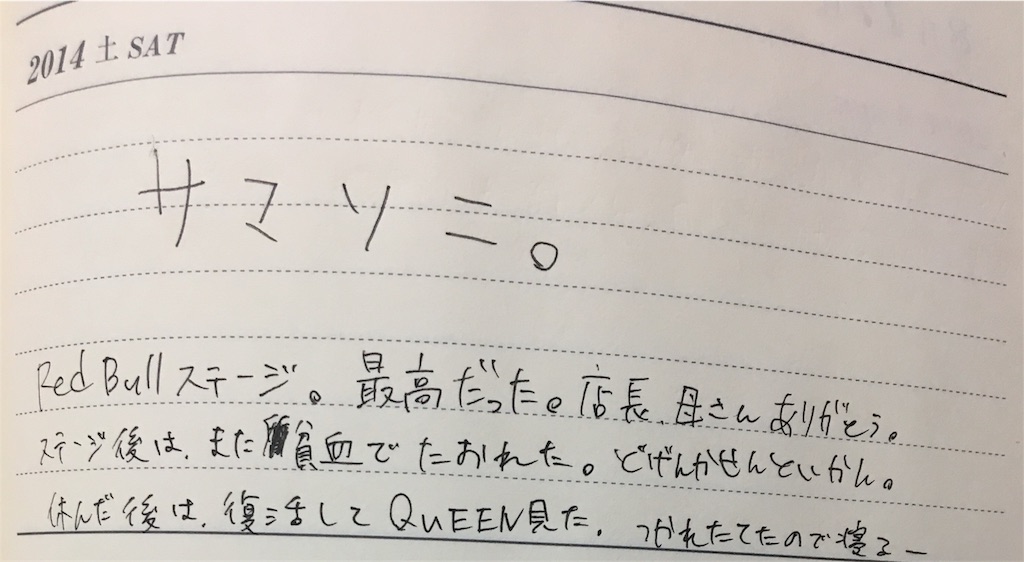 2014 土 SAT
サマソニ。
Red Bull ステージ。最高だった。店長、母さんありがとう。
ステージ後は、また貧血でたおれた。どげんかせんといかん。
休んだ後は、復活してQUEEN見た。つかれたてたので寝るー